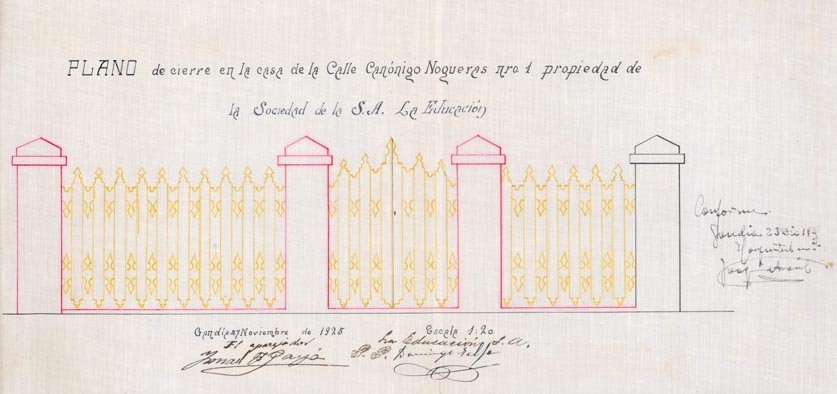 PLANO de cierre en la casa de la Calle Canónigo Nogueras nro. 1 propiedad de
la Sociedad de la S.A. La Educación
Conforme
Gandia 23
Gandia 27 Noviembre de 1925
Escala 1:20
El aparejador
La Educación S.A.
P. P. Domingo